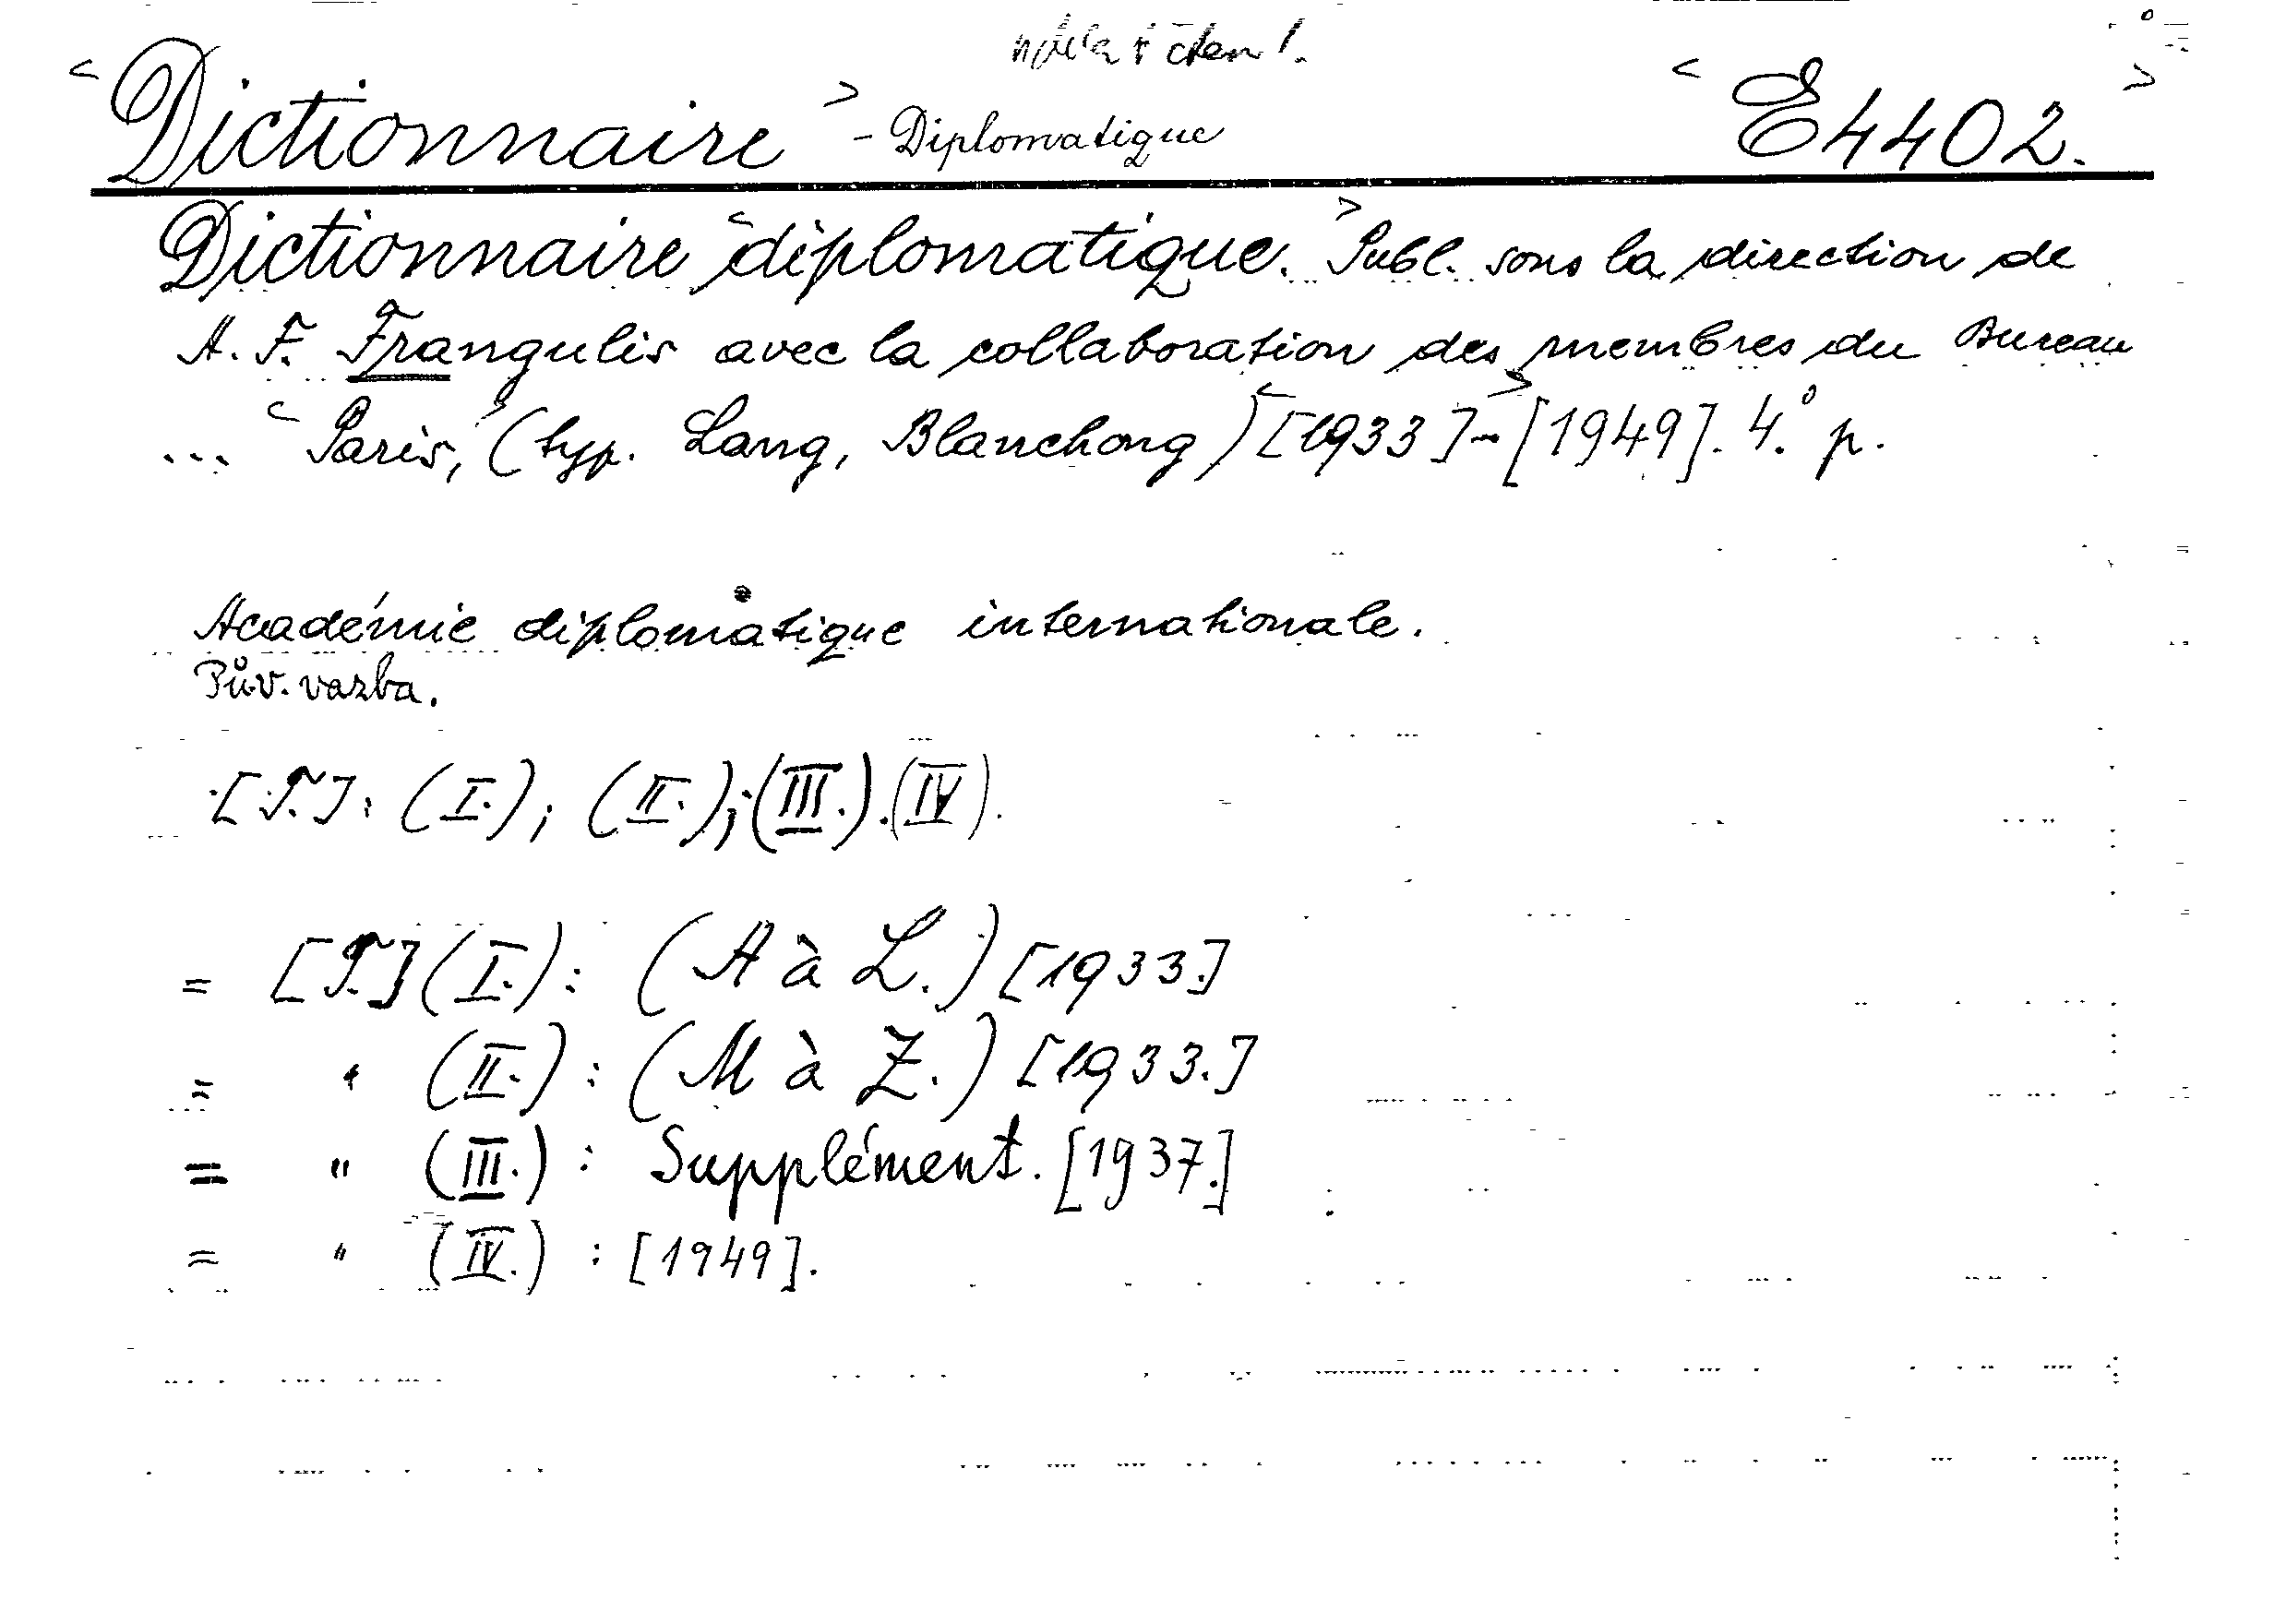 <Dictionnaire> - Diplomatique <E4402.>
Dictionnaire <diplomatique.> Publ. sous la direction de
A. F. Frangulis avec la collaboration des membres du Bureau
... <Paris,> (typ. Lang, Blanchong) <[1933]>-[1949]. 4.° p.
Académie diplomatique internationale.
Pův. vazba.
[T.]: (I.); (II.); (III.). (IV).
= [T.] (I.): (A à L.) [1933.]
= " (II.): (M à Z.) [1933.]
= " (III.): Supplément. [1937.]
= " (IV.): [1949].